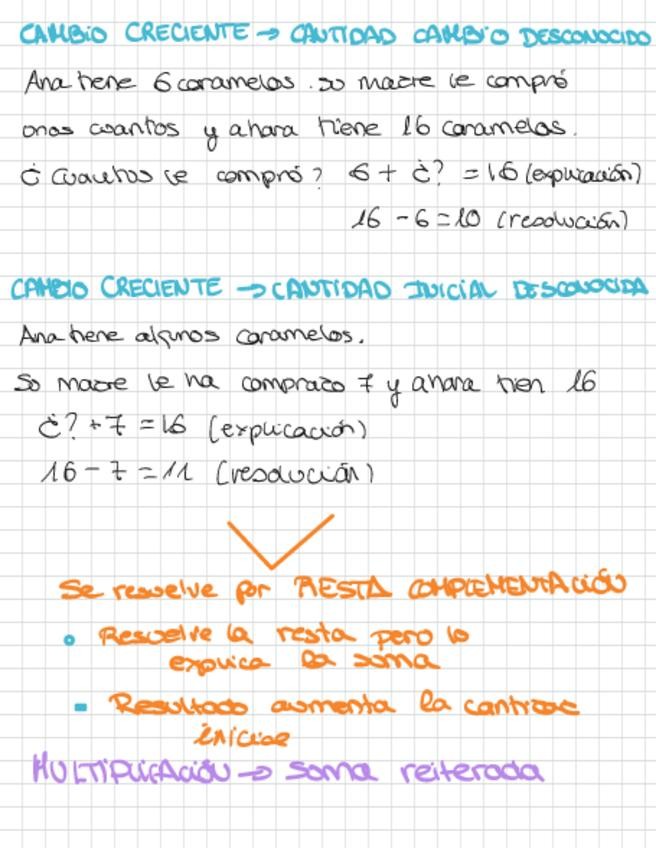 CAMBIO CRECIENTE → CANTIDAD CAMBIO DESCONOCIDO
Ana tiene 6 caramelos. su madre le compró
unos cuantos y ahora tiene 16 caramelos.
¿Cuantos le compró? 6 + ¿? = 16 (explicación)
16 - 6 = 10 (resolución)
CAMBIO CRECIENTE → CANTIDAD INICIAL DESCONOCIDA
Ana tiene algunos caramelos.
Su madre le ha comprado 7 y ahora tien 16
¿? + 7 = 16 (explicación)
16 - 7 = 11 (resolución)
Se resuelve por RESTA COMPLEMENTACIÓN
Resuelve la resta pero lo
explica la suma
Resultado aumenta la cantidad
inicial
MULTIPLICACIÓN → Suma reiterada